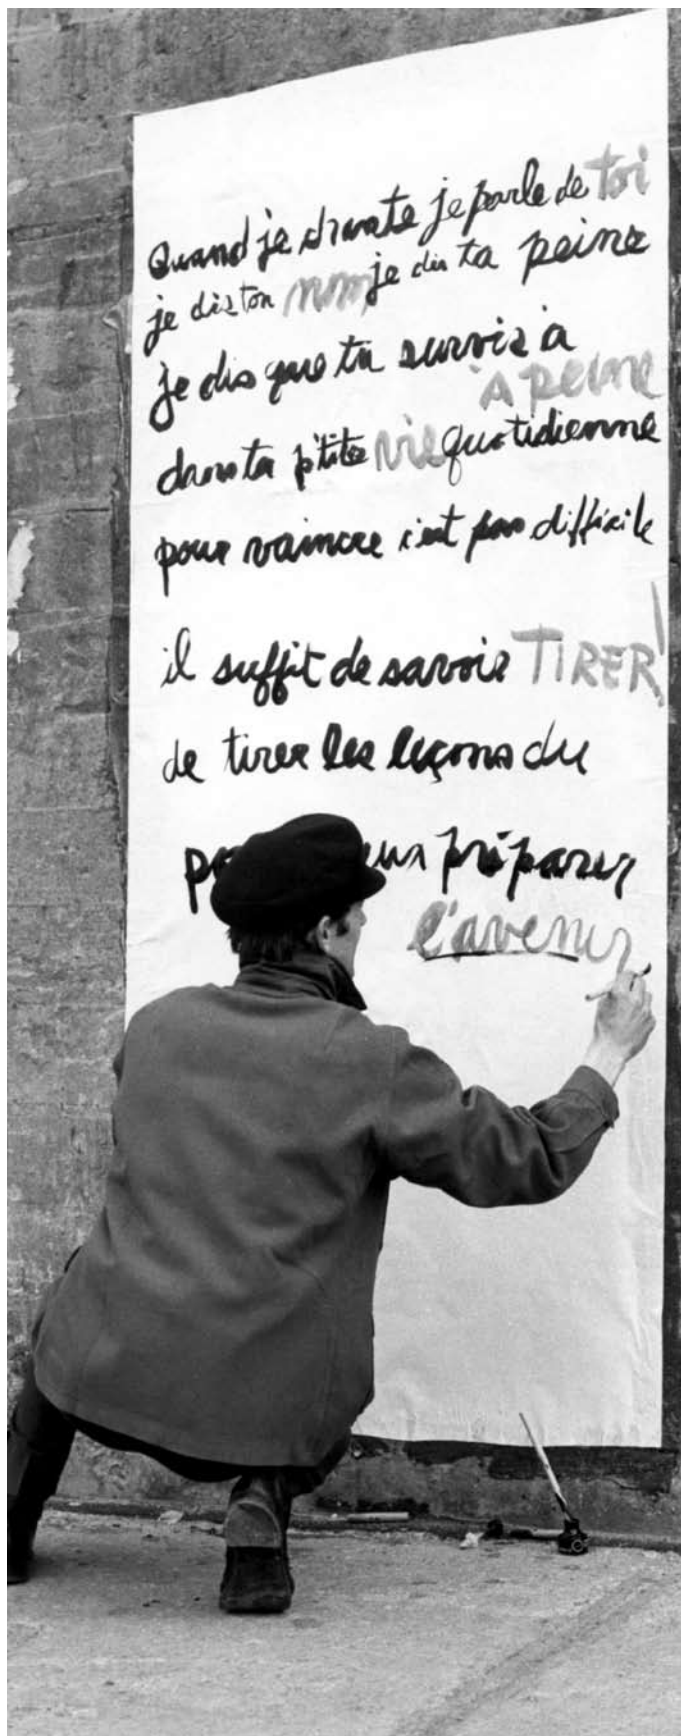 Quand je chante je parle de toi
je dis ton nom, je dis ta peine
je dis que tu survis à
à peine
dans ta p'tite vie quotidienne
pour vaincre c'est pas difficile
il suffit de savoir TIRER!
de tirer les leçons du
préparer
l'avenir